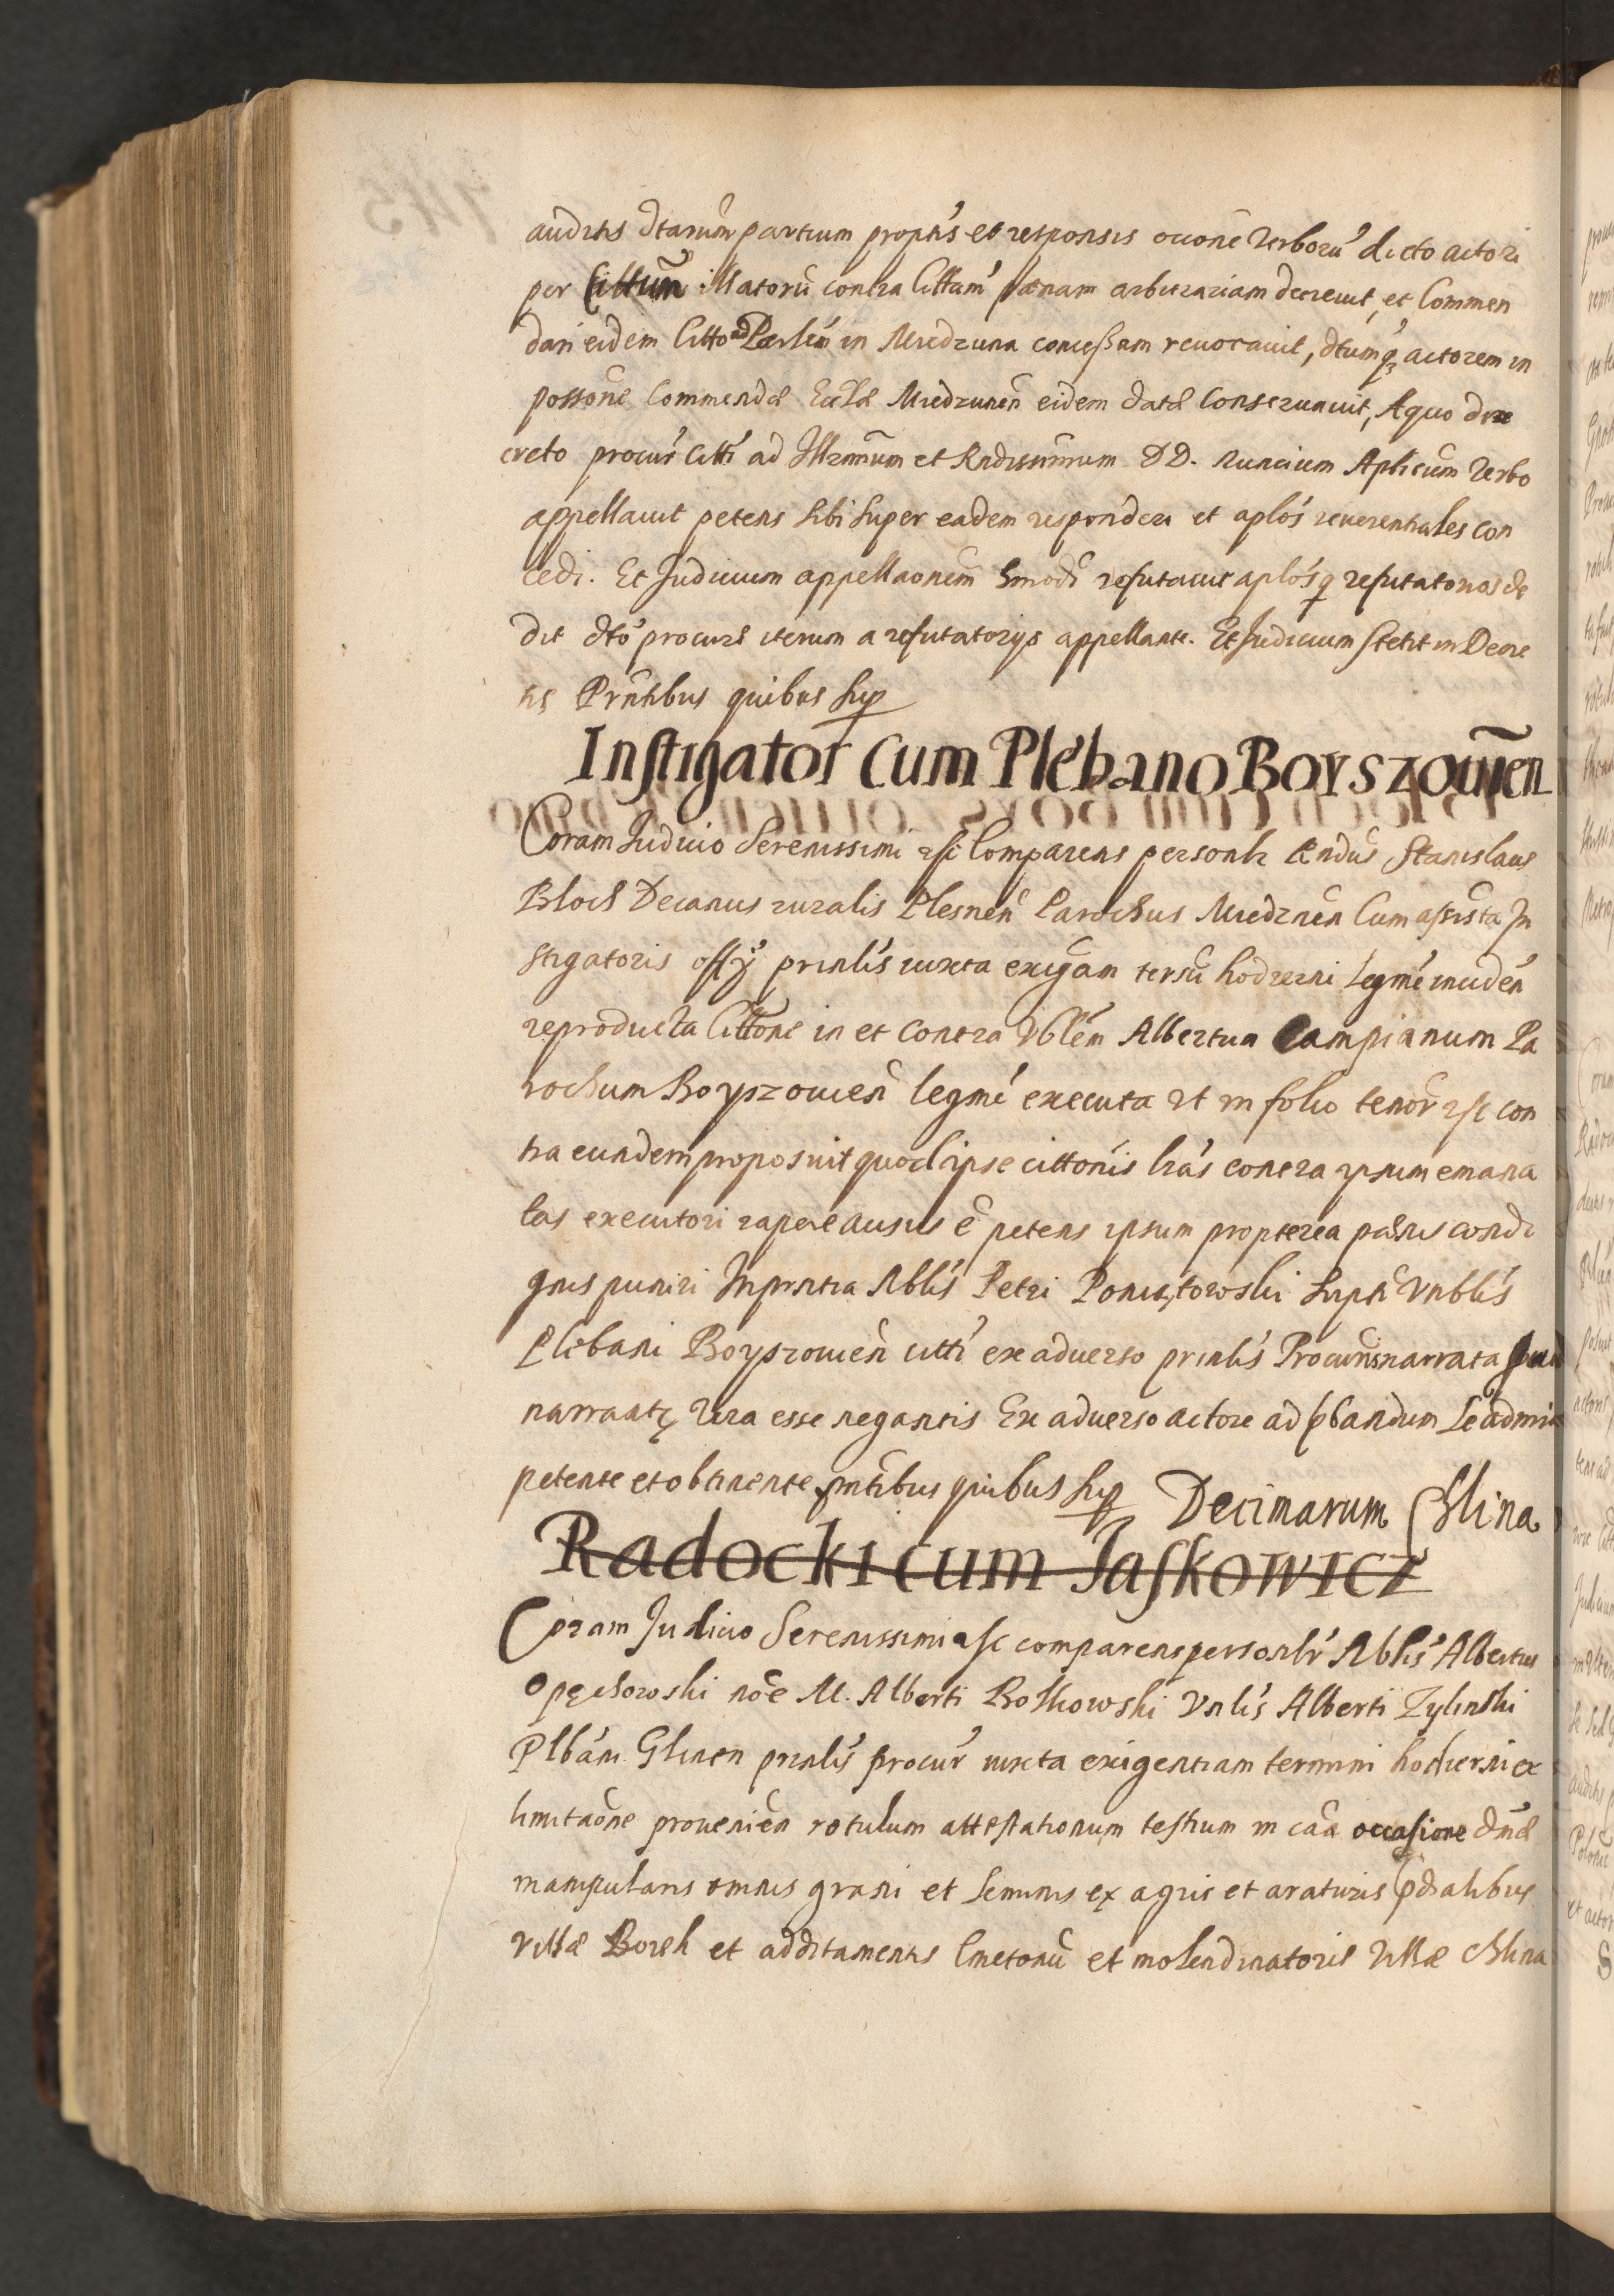 auditis dtarum partium proptis et responsis occone verborū dicto actori
per Cittum illatorū contra Cittum pænam arbitrariam decrevit, et Commen
dam eidem Citto ad Ecclam in Miedzvna concessam revocavit, dtumq actorem in
possone Commendæ Ecclæ Miedzvnen eidem datæ conservavit, A quo de
creto procur citti ad Illrmum et Rndissimum DD. Nuncium Aplicum verbo
appellavit petens sibi super eadem responderi et aplos reverentiales con
cedi. Et Judicium appellaonem hmodi refutavit aplosq refutatorios de
dit dto procure iterum a refutatorys appellante. Et Judicium stetit in Decre
tis Prntibus quibus sup
Instigator Cum Plebano Boyszowien
Coram Judicio Serenissimi asc Comparens personlr Rndus Stanislaus
Bloch Decanus ruralis Plesnen Parochus Miedznen Cum assista In
stigatoris offy prinlis iuxta exigam termi hodierni legme inciden
reproducta Cittone in et contra Vblem Albertum Campianum Pa
rochum Boyszowien legme executa ut in folio tenor asc con
tra eundem proposuit quod ipse cittonis lras contra ipsum emana
tas executori rapere ausus e petens ipsum propterea pænis condi
gnis puniri Inprntia Nblis Petri
Plebani Boyszowien citti ex adverso prinlis Procuris narrata
narrantr vera esse negantis Ex adverso actore ad pbandum se admitti
petente et obtinente prntibus quibus sup Decimarum Glina
Radocki cum Jaskowicz
Coram Judicio Serenissimi asc comparens personlr Nblis Albertus
Opęchowski noe M. Alberti Bolkowski Vnlis Alberti Zylinski
Plbani Glinen prinlis procur iuxta exigentiam termini hodierni ex
limitaone provenien rotulum attestationum testium in caa occasione dmæ
manipularis omnis grani et seminis ex agris et araturis pdialibus
villæ Borek et additamentis Cmetonū et molendinatoris villæ Glina